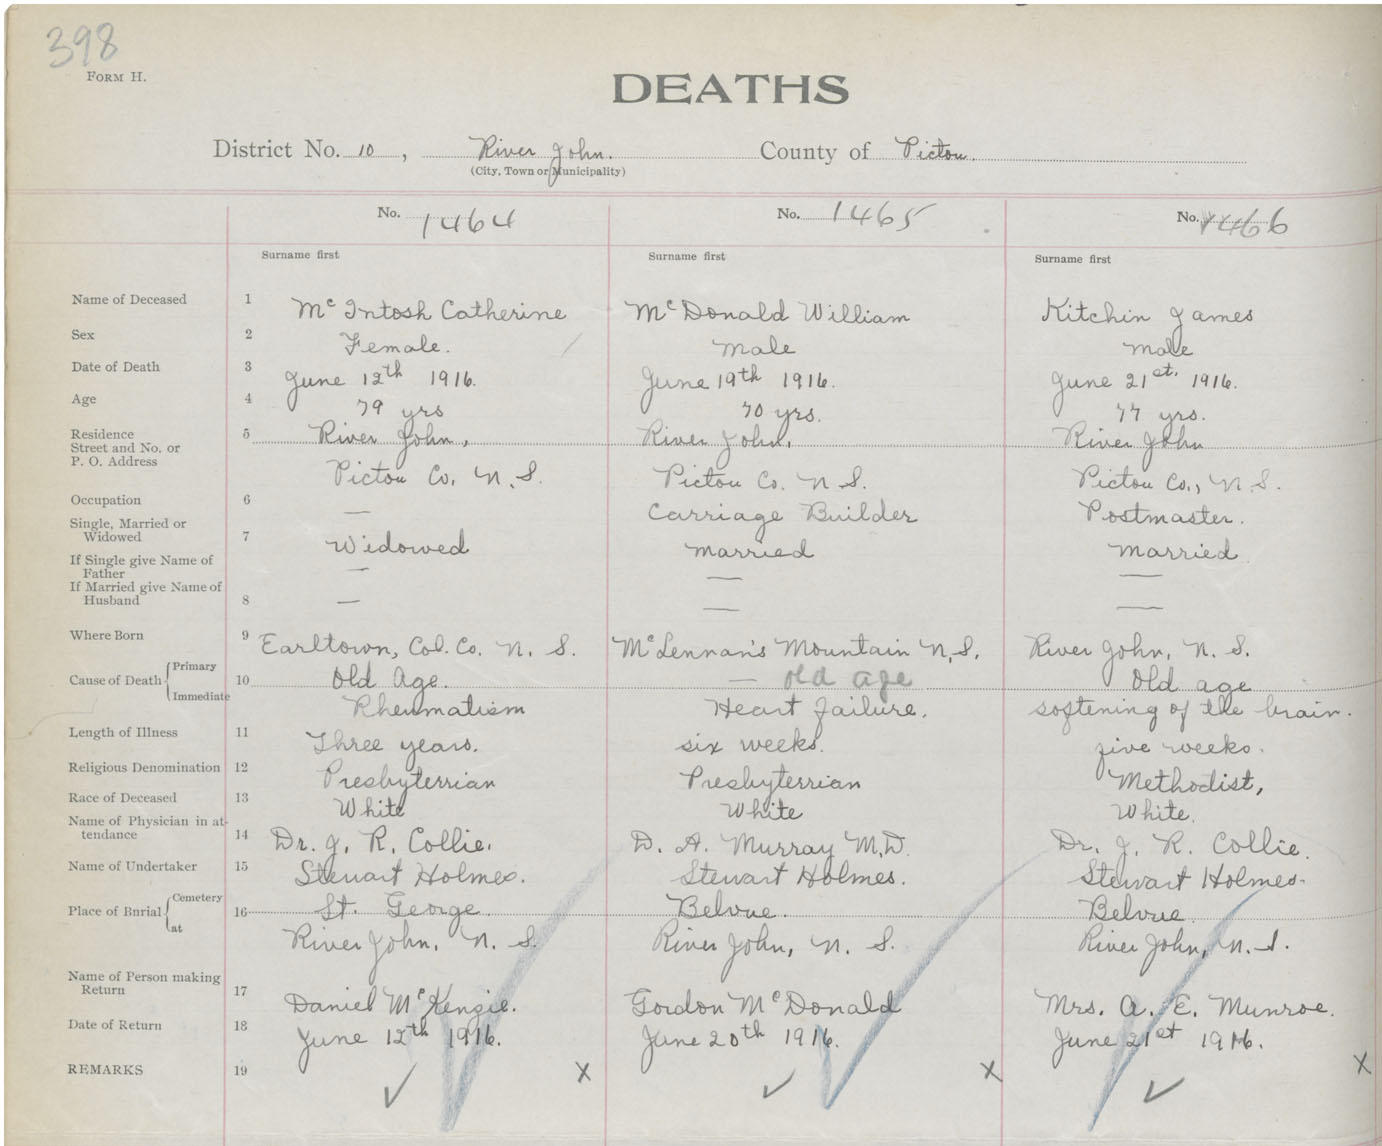 398
FORM H.
DEATHS
District No. 10, River John. County of Pictou.
(City, Town or Municipality)
No. 1464 No. 1465 No. 1466
Surname first Surname first Surname first
Name of Deceased 1 McIntosh Catherine McDonald William Kitchin James
Sex 2 Female. Male Male
Date of Death 3 June 12th 1916. June 19th 1916. June 21st. 1916.
Age 4 79 yrs 70 yrs. 77 yrs.
Residence 5 River John, River John, River John
Street and No. or
P. O. Address Pictou Co. N.S. Pictou Co. N.S. Pictou Co., N.S.
Occupation 6 — Carriage Builder Postmaster.
Single, Married or
Widowed 7 Widowed Married Married
If Single give Name of
Father — — —
If Married give Name of
Husband 8 — — —
Where Born 9 Earltown, Col. Co. N. S. McLennan's Mountain N.S. River John, N. S.
Cause of Death { Primary 10 Old Age. — old age Old age
Immediate Rheumatism Heart failure. softening of the brain.
Length of Illness 11 Three years. six weeks. five weeks.
Religious Denomination 12 Presbyterrian Presbyterrian Methodist,
Race of Deceased 13 White White White.
Name of Physician in at-
tendance 14 Dr. J. R. Collie. D. A. Murray M.D. Dr. J. R. Collie.
Name of Undertaker 15 Stewart Holmes. Stewart Holmes. Stewart Holmes.
Place of Burial { Cemetery 16 St. George. Belvue. Belvue.
at River John, N. S. River John, N. S. River John, N. S.
Name of Person making
Return 17 Daniel McKenzie. Gordon McDonald Mrs. A. E. Munroe.
Date of Return 18 June 12th 1916. June 20th 1916. June 21st 1916.
REMARKS 19 ✓ x ✓ x ✓ x